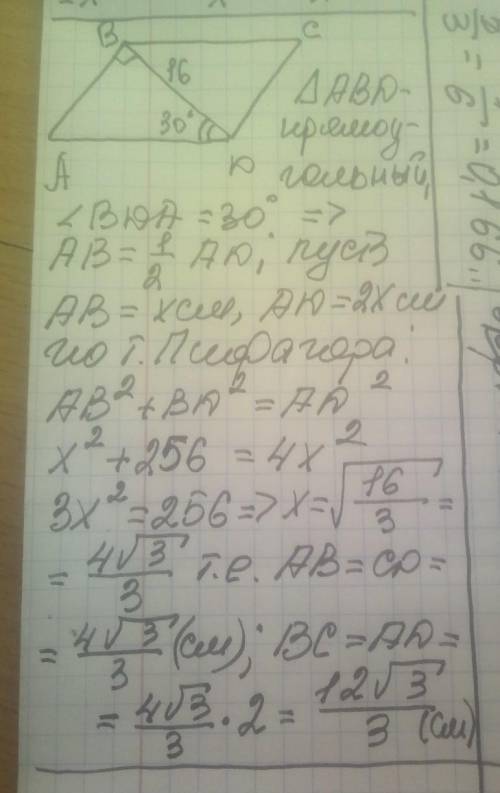 B C
16
30°
A D
△ABD-
прямоу-
гольный,
∠BDA = 30° =>
AB = 1/2 AD; пусть
AB = x см, AD = 2x см
по т. Пифагора:
AB² + BD² = AD²
x² + 256 = 4x²
3x² = 256 => x = √(16/3) =
= 4√3/3 т.е. AB = CD =
= 4√3/3 (см); BC = AD =
= 4√3/3 · 2 = 12√3/3 (см)